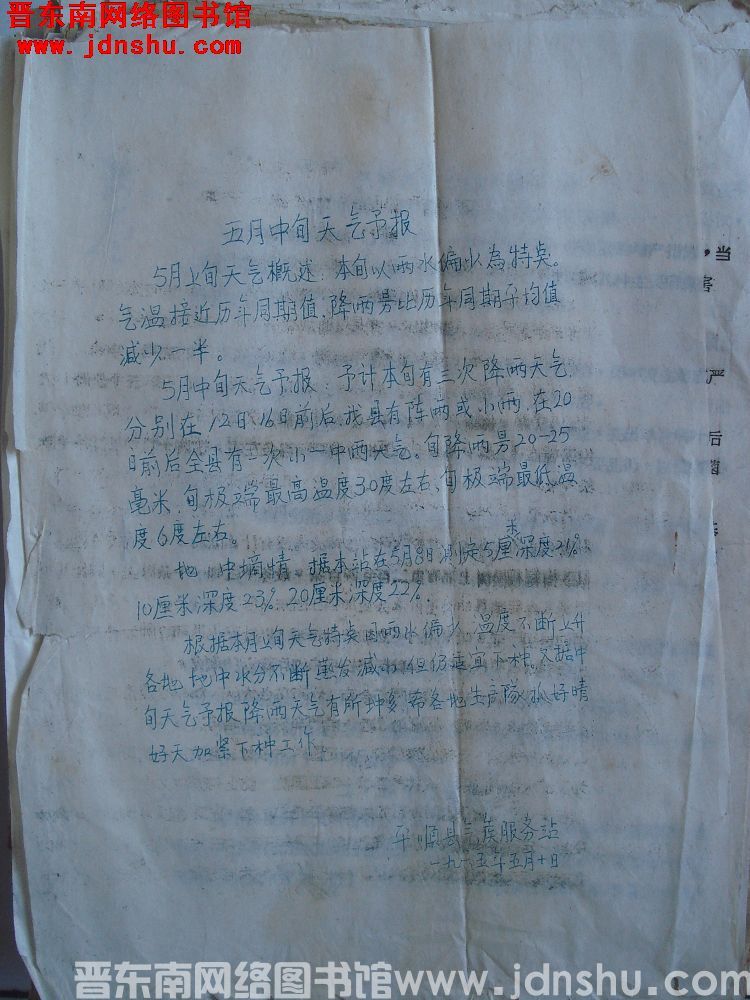 晋东南网络图书馆
www.jdnshu.com
五月中旬天气予报
5月上旬天气概述:本旬以雨水偏少為特点。
气温接近历年同期值,降雨量比历年同期平均值
减少一半。
5月中旬天气予报:予计本旬有三次降雨天气:
分别在12日16日前后我县有阵雨或小雨,在20
日前后全县有一次小—中雨天气。旬降雨量20-25
毫米,旬极端最高温度30度左右,旬极端最低温
度6度左右。
地中墒情:据本站在5月8日测定5厘米深度21%
10厘米深度23%,20厘米深度22%.
根据本月上旬天气特点因雨水偏少,温度不断上升
各地地中水分不断蒸发减少,但仍适宜下种,又据中
旬天气予报降雨天气有所增多,希各地生产隊抓好晴
好天加紧下种工作。
平顺县气候服务站
一九 五年五月十日
当
害
严
后
晋东南网络图书馆www.jdnshu.com